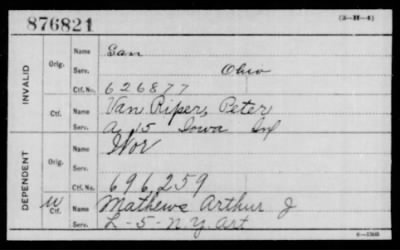 876821
(3-H-4)
INVALID
Orig.
Name San
Serv. Ohio
Ctf. No. 626877
Ctf.
Name Van Riper, Peter
Serv. A. 15 Iowa Inf
DEPENDENT
Orig.
Name Nor
Serv.
Ctf. No. 696,259
W Ctf.
Name Mathews Arthur J
Serv. L-5-N.Y. Art